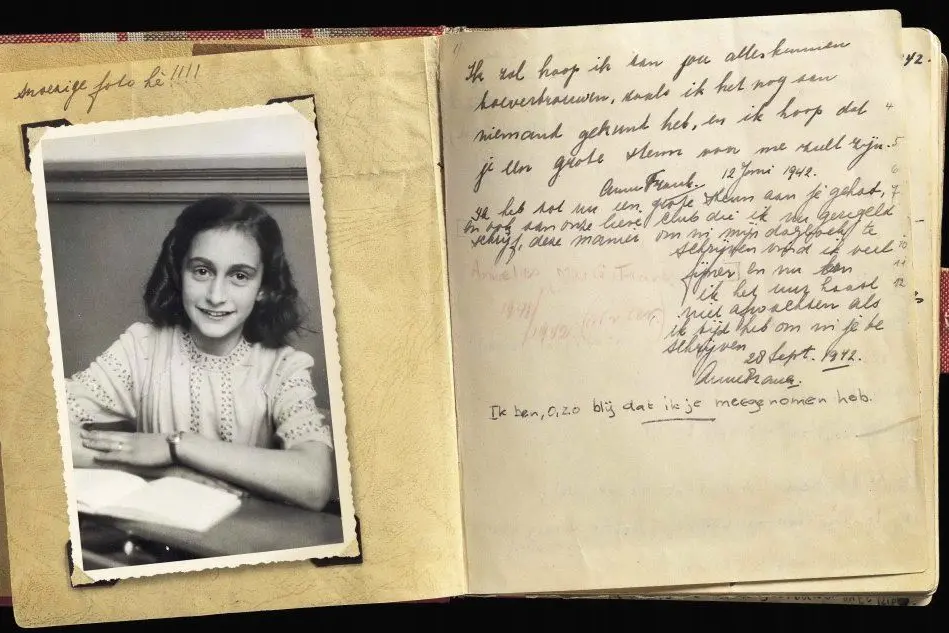 snoezige foto hè!!!!
Ik zal hoop ik aan jou alles kunnen
toevertrouwen, zoals ik het nog aan
niemand gekund heb, en ik hoop dat
je een grote steun voor me zult zijn.
Anne Frank. 12 Juni 1942.
Ik heb tot nu een grote steun aan je gehad,
en ook aan onze lieve club die ik nu geregeld
schrijf, deze manier om in mijn dagboek te
schrijven vind ik veel
fijner en nu kan
ik het uur haast
niet afwachten als
ik tijd heb om in je te
schrijven
28 Sept. 1942.
Anne Frank.
Ik ben, O, zo blij dat ik je meegenomen heb.
42.
4
5
6
7
10
11
12
1941/
1942